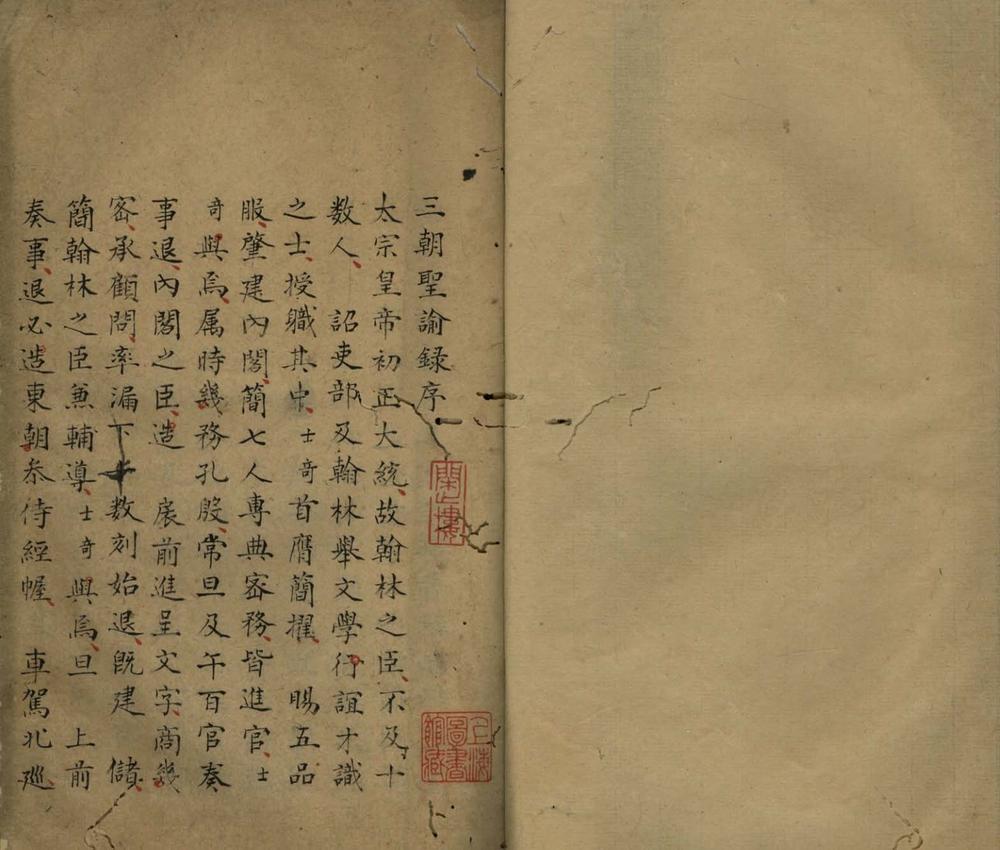 三朝聖諭錄序
太宗皇帝初正大統故翰林之臣不及十
数人 詔吏部及翰林舉文學行誼才識
之士授職其中士奇首膺簡擢 賜五品
服肇建內閣簡七人專典密務皆進官士
奇與焉属時幾務孔殷常旦及午百官奏
事退內閣之臣造 扆前進呈文字商幾
密承顧問率漏下十数刻始退既建 儲
簡翰林之臣兼輔導士奇與焉旦 上前
奏事退必造東朝叅侍經幄 車駕北廵
上海圖書館藏